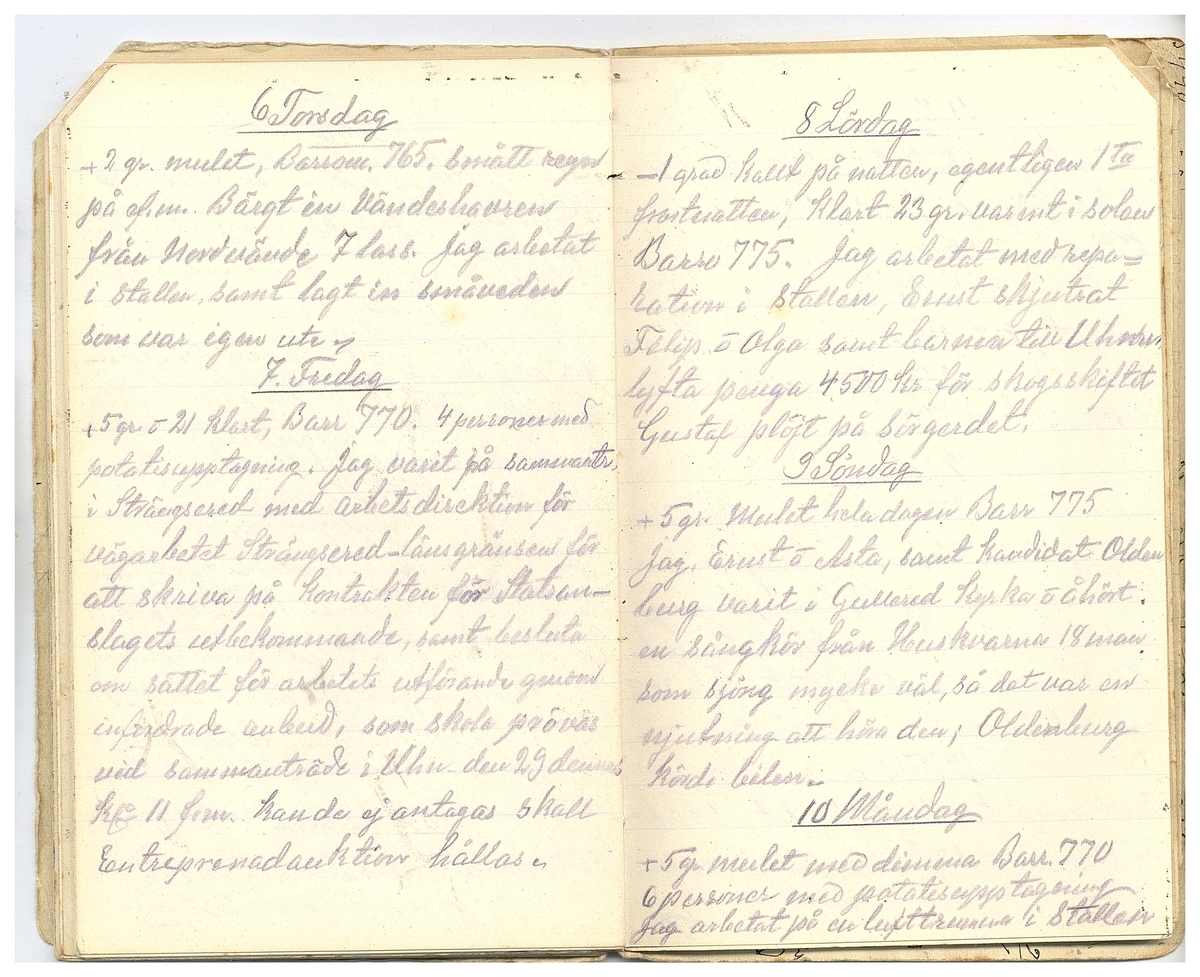 6 Torsdag
+2 gr. mulet, Barrom. 765. smått regn
på ef.m. Bärgt in Vändeshavren
från Nordvände 7 lass. Jag arbetat
i Stallen, samt lagt in småveden
som var igen ute.
7. Fredag
+5 gr. o 21 Klart, Barr 770. 4 personer med
potatisupptagning. Jag varit på sammantr.
i Strängsered med arbetsdirektion för
vägarbetet Strängsered-länsgränsen för
att skriva på Kontrakten för Statsan-
slagets utbekommande, samt besluta
om sättet för arbetets utförande genom
infordrade anbud, som skola prövas
vid sammanträde i Ulhn. den 29 dennes
Kl 11 f.m. kan de ej antagas skall
Entreprenadauktion hållas.
8 Lördag
-1 grad kallt på natten, egentligen 1sta
frostnatten, Klart 23 gr. varmt i solen
Barro 775. Jag arbetat med repa=
ration i Stallen, Ernst skjutsat
Filip o Olga samt barnen till Ulhn
lyfta penga 4500 Kr för skogsskiftet
Gustaf plöjt på sörgerdet.
9 Söndag
+5 gr. Mulet hela dagen Barr 775
Jag, Ernst o Asta, samt Kandidat Olden
burg varit i Gullered Kyrka o åhört
en sångkör från Huskvarna 18 man
som sjöng mycke väl, så det var en
njutning att höra den, Oldenburg
körde bilen.
10 Måndag
+5 gr mulet med dimma Barr. 770
6 personer med potatisupptagning
Jag arbetat på en lufttrumma i Stallen